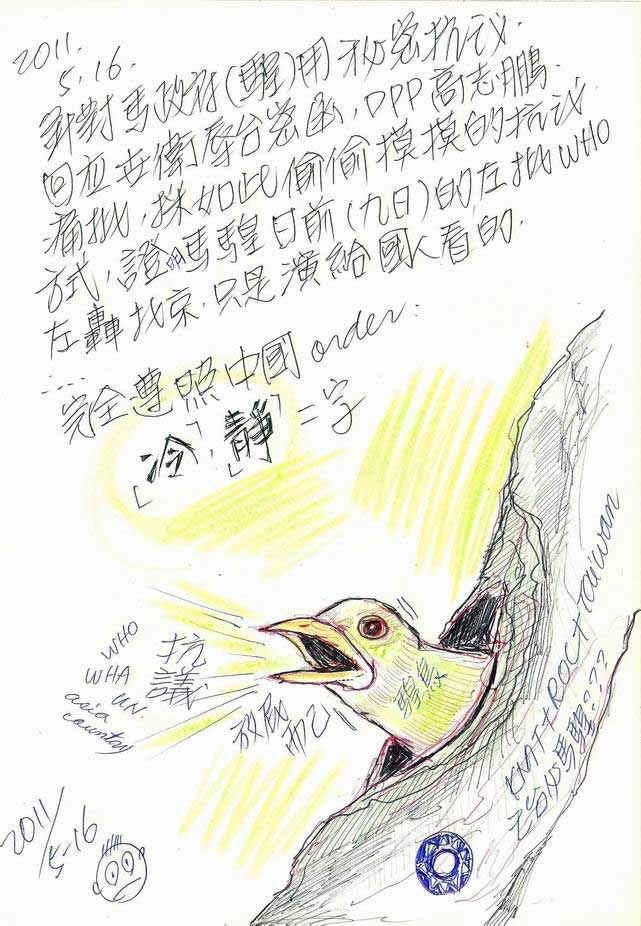 2011.
5.16.
針對馬政府(騜)用秘密抗议
回应世衛辱台密函,DPP高志鵬
痛批,採如此偷偷摸摸的抗议
方式,證明馬騜日前(九日)的左批WHO
左轟北京,只是演給國人看的.
...
完全尊照中國order:
「冷」,「靜」二字
WHO
WHA
UN.
asia
country
抗
議
放
而已
KMT+ROC+Taiwan
馬騜???
2011/
5-16